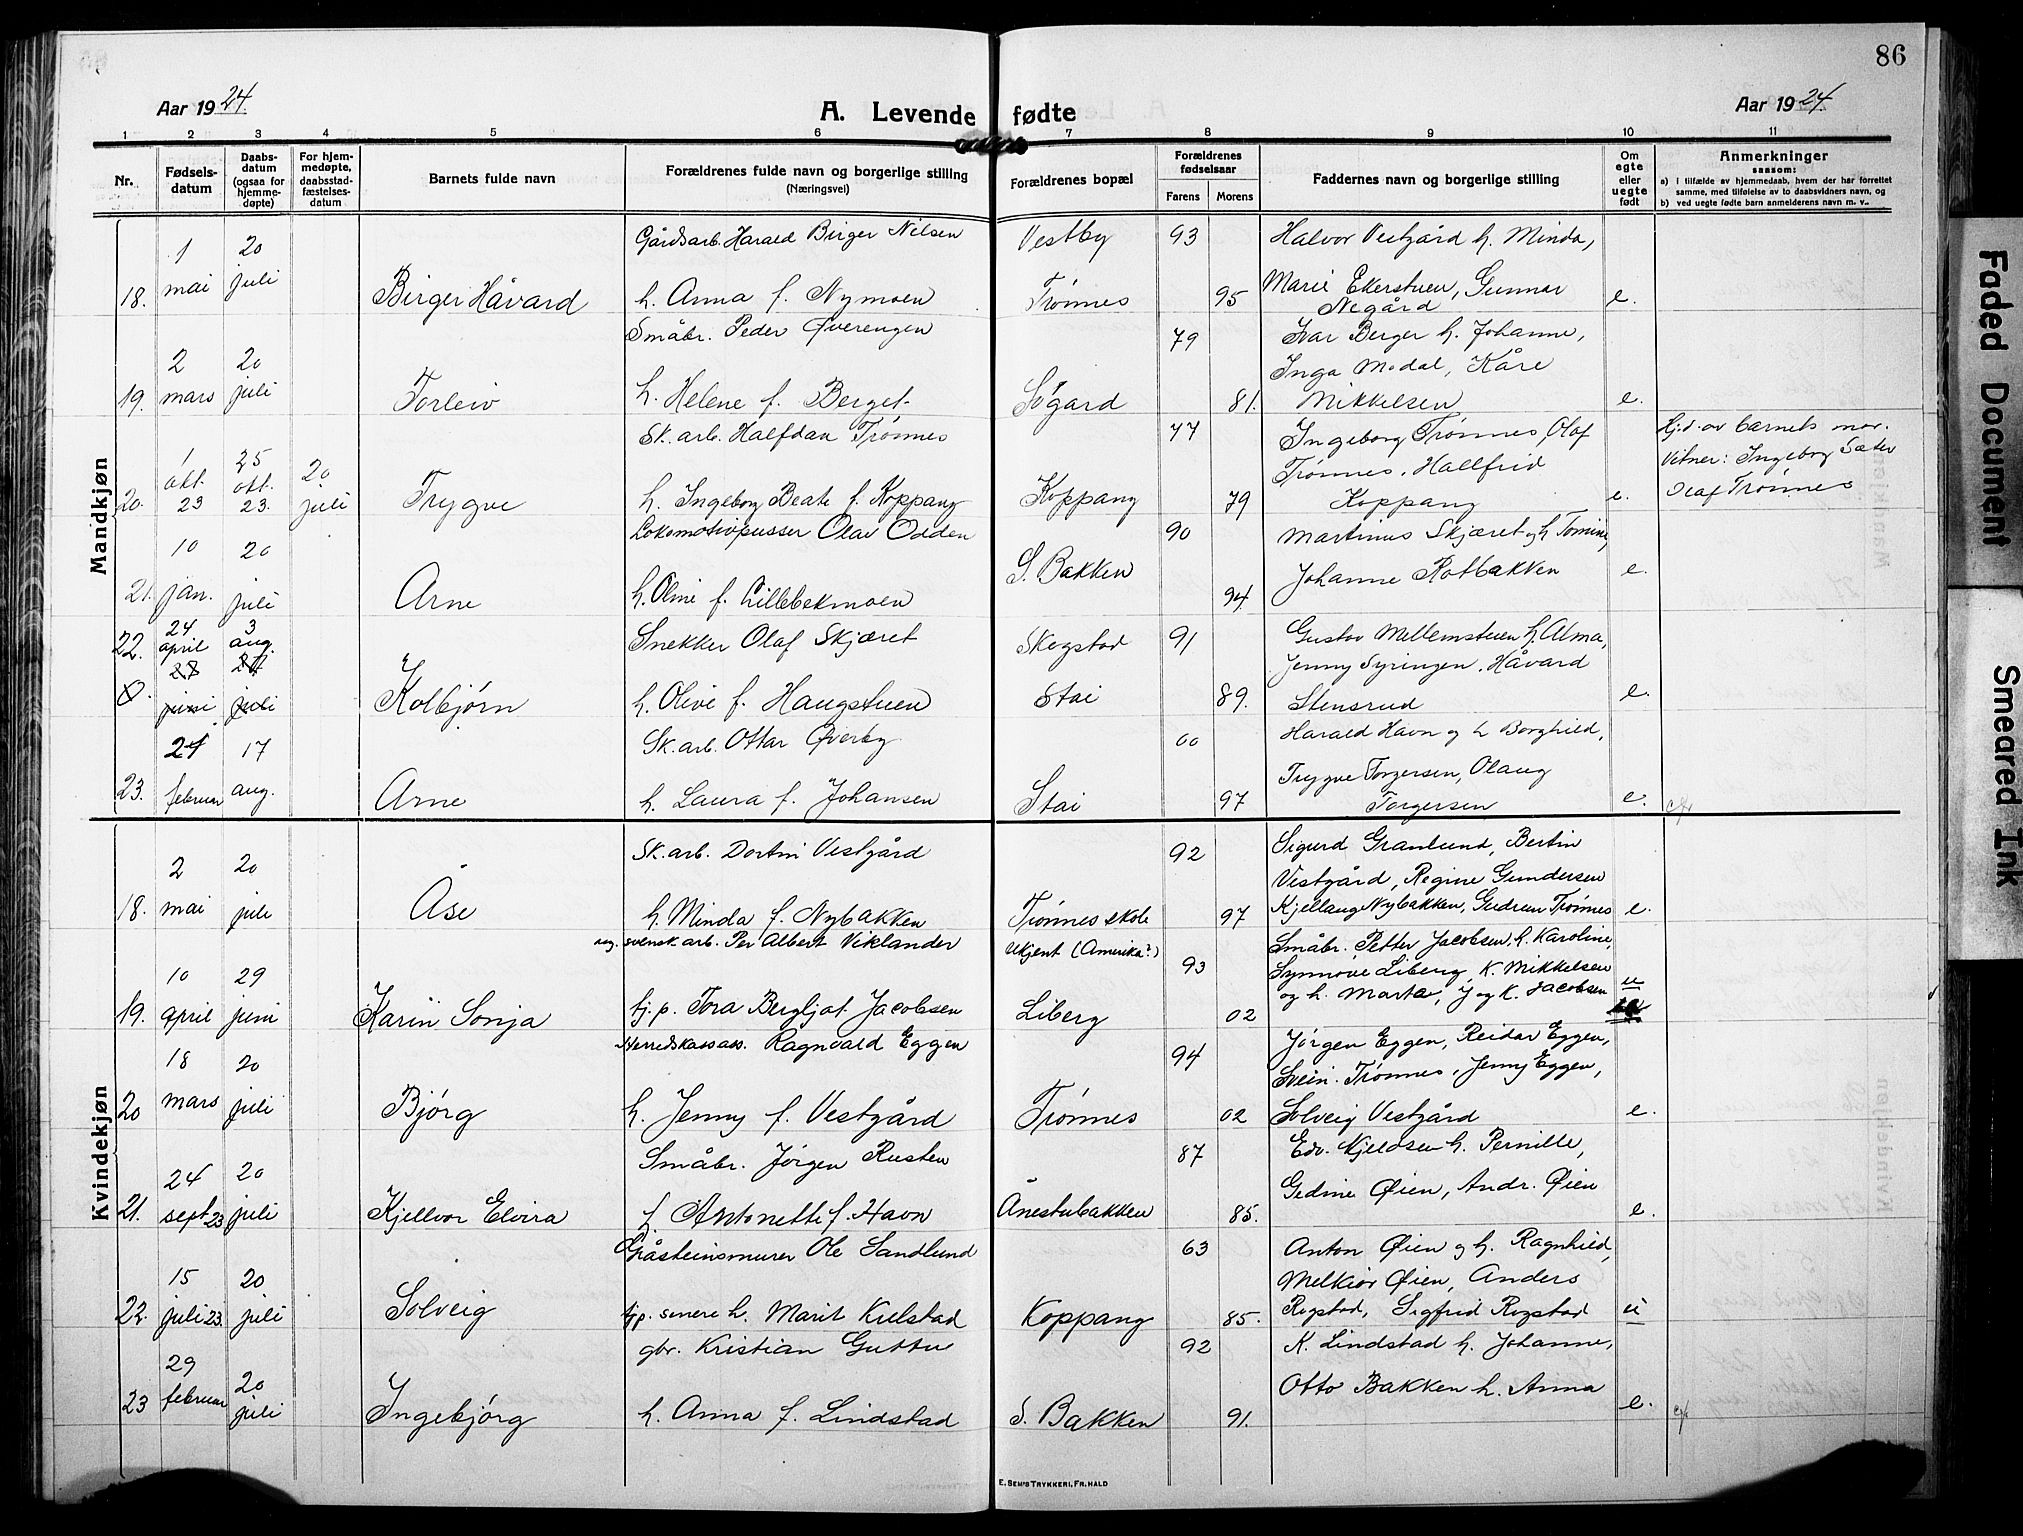 86
Aar 1924.
A. Levende fødte
Aar 1924
1 2 3 4 5 6 7 8 9 10 11
Nr.
Fødsels-
datum
Daabs-
datum
(ogsaa for
hjemme-
døpte)
For hjem-
medøpte,
daabsstad-
fæstelses-
datum
Barnets fulde navn
Forældrenes fulde navn og borgerlige stilling
(Næringsvei)
Forældrenes bopæl
Forældrenes
fødselsaar
Farens Morens
Faddernes navn og borgerlige stilling
Om
egte
eller
uegte
født
Anmerkninger
saasom:
a) i tilfælde av hjemmedaab, hvem der har forrettet
samme, med tilføielse av to daabsvidners navn, og
b) ved uegte fødte barn anmelderens navn m. v..
Mandkjøn
18.
1
mai
20
juli
Birger Håvard
Gårdsarb. Harald Birger Nilsen
h. Anna f. Nymoen
Vestby
Trønnes
93
95
Halvor Vestgård h. Minda,
Marie Ekerstuen, Gunnar
Negård
e.
19.
2
mars
20
juli
Torleiv
Småbr. Peder Øverengen
h. Helene f. Berget
Søgård
79
81.
Ivar Berger h. Johanne,
Inga Modal, Kåre
Mikkelsen
e.
20.
1
okt.
23
25
okt.
23.
20
juli
Trygve
Sk. arb. Halfdan Trønnes
h. Ingeborg Beate f. Koppang
Koppang
77
79
Ingeborg Trønnes, Olaf
Trønnes, Hallfrid
Koppang
e.
Hj.d. av barnets mor.
Vitner: Ingeborg Sæter
Olaf Trønnes
21.
10
jan.
20
juli
Arne
Lokomotivpusser Olav Odden
h. Oline f. Lillebekmoen
S. Bakken
90
94
Martinus Skjæret og h. Tomine,
Johanne Rotbakken
e.
22.
24
april
3
aug.
27
juni
juli
Kolbjørn
Snekker Olaf Skjæret
h. Olive f. Haugstuen
Skogstad
Stai
91
89.
Gustav Mellemstuen h. Alma,
Jenny Syringen, Håvard
Stensrud
e.
23.
21
februar
17
aug.
Arne
Sk. arb. Ottar Øverby
h. Laura f. Johansen
Stai
00
97
Harald Havn og h Borghild,
Trygve Torgersen, Olaug
Torgersen
e.
Kvindekjøn
18.
2
mai
20
juli
Åse
Sk. arb. Dortin Vestgård
h. Minda f. Nybakken
Trønnes skole
92
97
Sigurd Granlund, Bertin
Vestgård, Regine Gundersen
Kjellaug Nybakken, Gudrun Trønnes
e.
19.
10
april
29
juni
Karin Sonja
svensk arb. Per Albert Viklander
tj. p. Tora Bergljot Jacobsen
Ukjent (Amerika?)
Liberg
93
02
Småbr. Petter Jacobsen, h. Karoline,
Synnøve Liberg, K. Mikkelsen
og h. Marta, J og K. Jacobsen
u
20
18
mars
20
juli
Bjørg
Herredskassass. Ragnvald Eggen
h. Jenny f. Vestgård
Trønnes
94
02
Jørgen Eggen, Reidar Eggen,
Svein Trønnes, Jenny Eggen,
Solveig Vestgård
e.
21.
24
sept 23
20
juli
Kjellvor Elvira
Småbr. Jørgen Rusten
h. Antonette f. Havn
Ånestubakken
87
85.
Edv. Kjeldsen h. Pernille,
Gedine Øien, Andr. Øien
e.
22.
15
juli 23.
20
juli
Solveig
Gråsteinsmurer Ole Sandlund
tj.p. senere h. Marit Kielstad
Koppang
63
85.
Anton Øien og h. Ragnhild,
Melkior Øien, Anders
Rogstad, Sigfrid Rogstad
u
23
29
februar
20
juli
Ingebjørg
gbr. Kristian Guttu
h. Anna f. Lindstad
S. Bakken
92
91.
K. Lindstad h. Johanne,
Otto Bakken h. Anna
e.
E. Sem's Trykkeri, Fr.hald
Faded Document
Smeared Ink